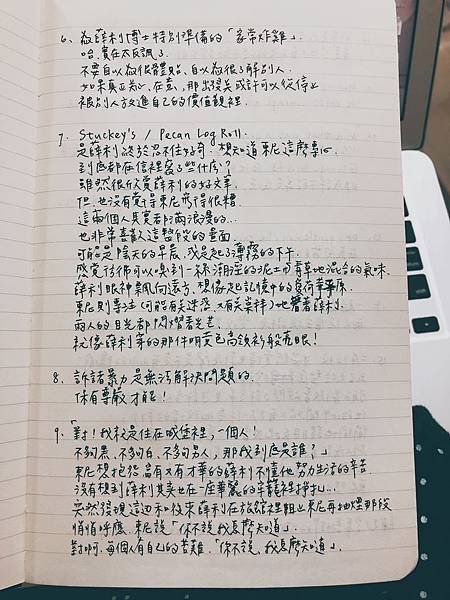 6、為薛利博士特別準備的「家常炸雞」.
哈,實在太反諷了.
不要自以為很體貼、自以為很了解別人.
如果真正知心、在意,那出發矣或許可以從停止
被別人放進自己的價值觀裡.
7、Stuckey's / Pecan Log Roll.
是薛利終於忍不住好奇,想知道東尼這麼專心
到底都在信裡寫了些什麼?
雖然很欣賞薛利的好文筆,
但,也沒有覺得東尼飛得很糟.
這兩個人其實都滿浪漫的...
也非常喜歡這整段的畫面
可能是陰天的早晨,或是起了薄霧的下午.
感覺彷彿可以嗅到一絲潮溼的泥土和青草地混合的氣味.
薛利眼神飄向遠方,想像起記憶中的
東尼則專注(可能有夾迷惑又有夾崇拜)地看著薛利.
兩人的目光都閃爍著光芒.
就像薛利穿的那件明黃色高領衫般亮眼!
8、訴諸暴力是無法解決問題的,
保有尊嚴才能!
9、「對!我就是住在城堡裡,一個人!
不夠黑、不夠白、不夠男人,那我到底是誰?」
東尼想抱怨富有又有才華的薛利不懂他努力生活的辛苦
沒有想到薛利其實也在一座華麗的牢籠裡掙扎...
突然發現這邊和後來薛利在旅館裡阻止東尼再抽煙那段
悄悄呼應,東尼說「你不說,我怎麼知道」.
對啊,每個人有自己的苦難,「你不說,我怎麼知道」.